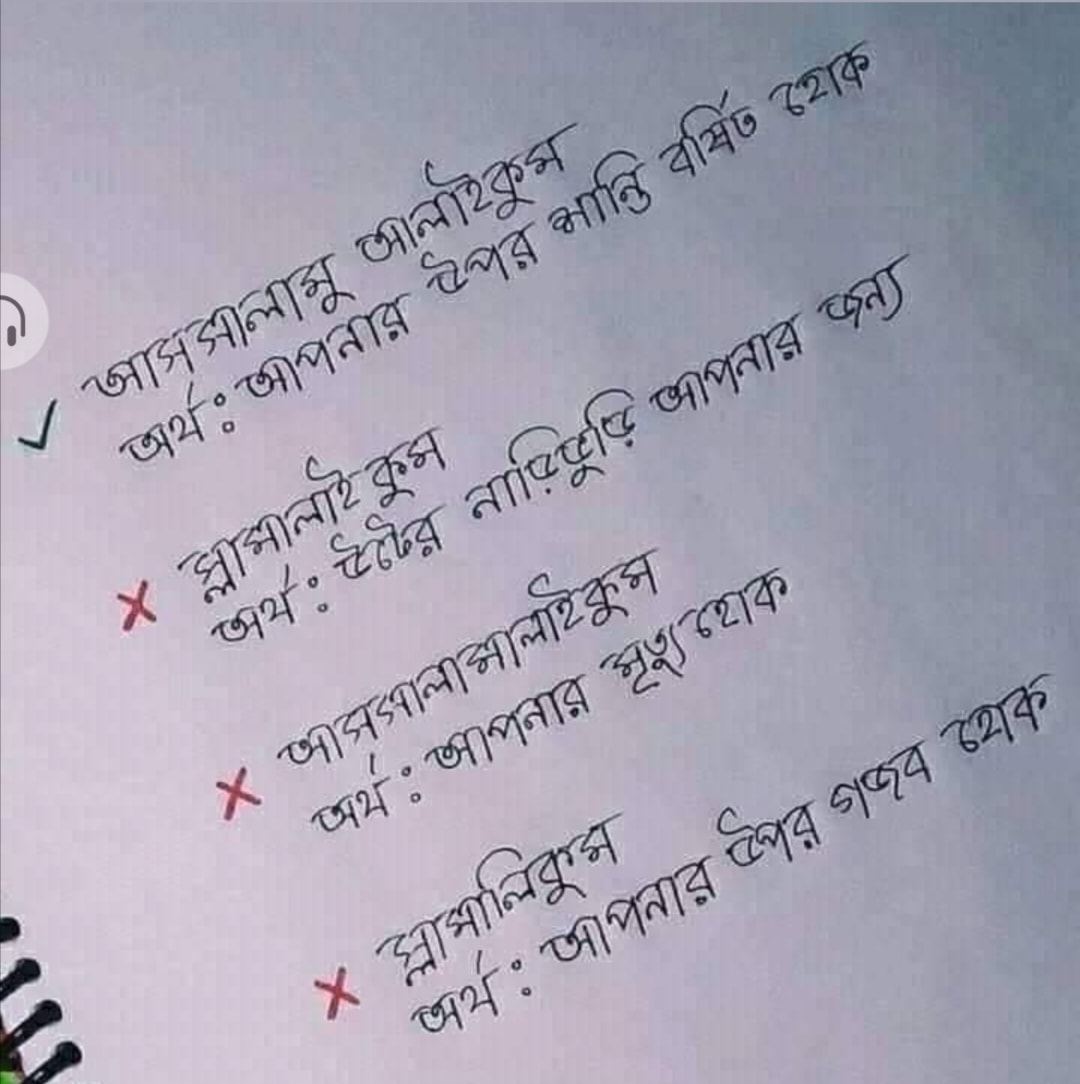 আস্সালামু আলাইকুম
অর্থ: আপনার উপর শান্তি বর্ষিত হোক
স্লামালাই কুম
অর্থ: উটের নাড়িভুড়ি আপনার জন্য
আস্সালামালাইকুম
অর্থ: আপনার মৃত্যু হোক
স্লামালিকুম
অর্থ: আপনার উপর গজব হোক